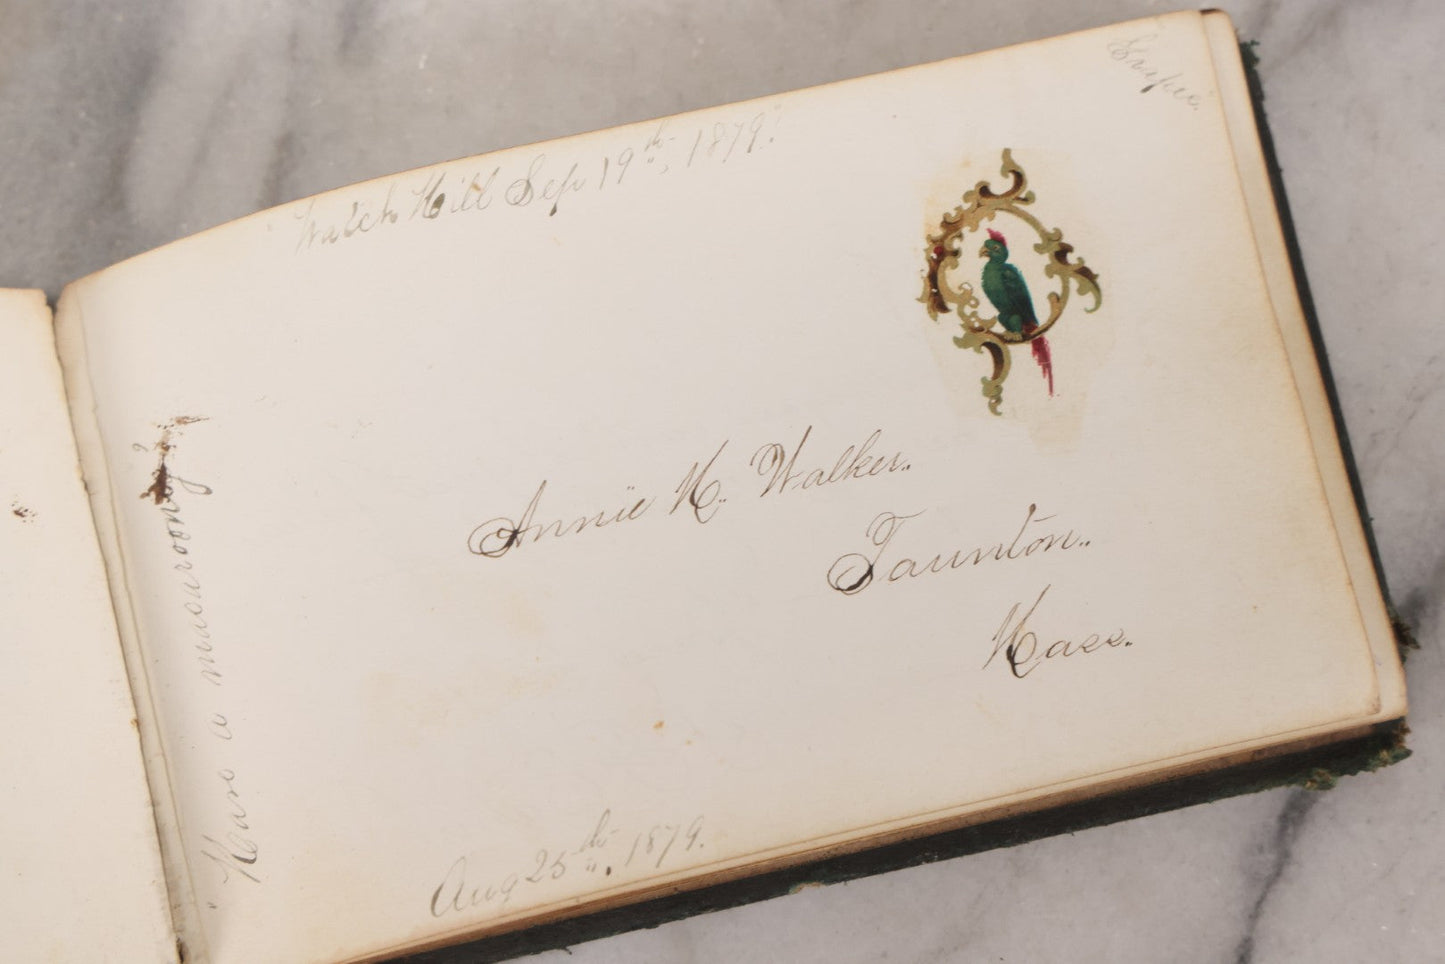 "Watch Hill Sep 19th, 1879."
Annie M. Walker.
Taunton.
Mass.
Aug 25th. 1879.
a macaroon?"